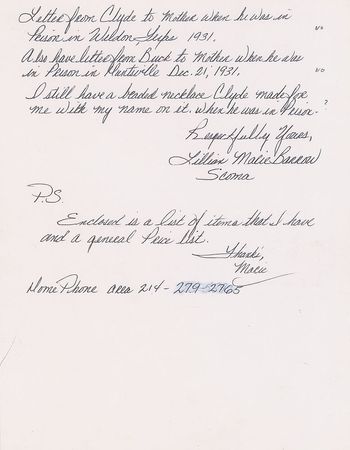 Letter from Clyde to Mother when he was in
Prison in Weldon, Texas 1931. no
Also have letter from Buck to Mother when he was
in Prison in Huntsville Dec. 21, 1931. no
I still have a beaded necklace Clyde made for
me with my name on it. when he was in Prison. ?
Respectfully Yours,
Lillian Marie Barrow
Scoma
P.S.
Enclosed is a list of items that I have
and a general Price list.
Thanks,
Marie
Home Phone area 214 - 279-2765